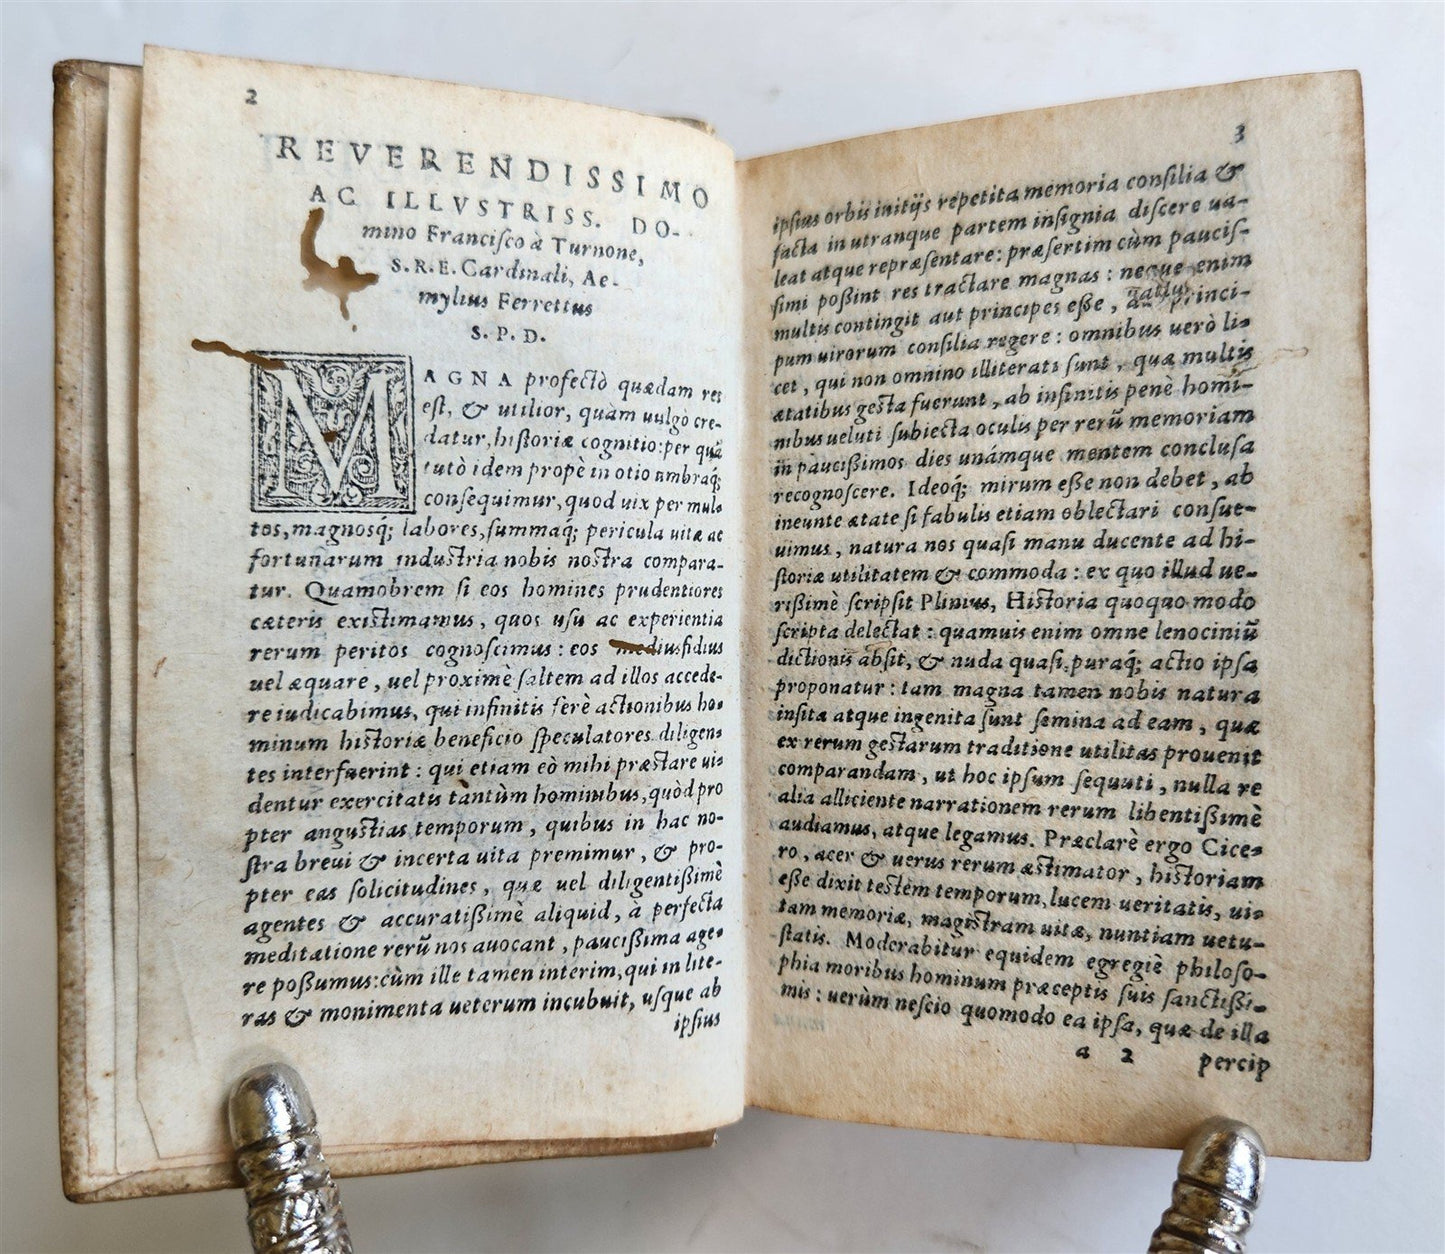 2
REVERENDISSIMO
AC ILLVSTRISS. DO-
mino Francisco à Turnone,
S.R.E. Cardinali, Ae-
mylius Ferrettus
S. P. D.
MAGNA profectò quædam res
est, & utilior, quàm uulgò cre-
datur, historiæ cognitio: per quã
tutò idem propè in otio umbraq́;
consequimur, quod uix per mul-
tos, magnosq́; labores, summaq́; pericula uitæ ac
fortunarum industria nobis nostra compara-
tur. Quamobrem si eos homines prudentiores
cæteris existimamus, quos usu ac experientia
rerum peritos cognoscimus: eos mediusfidius
uel æquare, uel proximè saltem ad illos accede-
re iudicabimus, qui infinitis ferè actionibus ho-
minum historiæ beneficio speculatores diligen-
tes interfuerint: qui etiam eò mihi præstare ui-
dentur exercitatis tantùm hominibus, quòd pro
pter angustias temporum, quibus in hac no-
stra breui & incerta uita premimur, & pro-
pter eas solicitudines, quæ uel diligentißimè
agentes & accuratißimè aliquid, à perfecta
meditatione rerũ nos auocant, paucißima age-
re poßumus: cùm ille tamen interim, qui in lite-
ras & monimenta ueterum incubuit, usque ab
ipsius
3
ipsius orbis initijs repetita memoria consilia &
facta in utranque partem insignia discere ua-
leat atque repræsentare: præsertim cùm paucis-
simi poßint res tractare magnas: neque enim
multis contingit aut principes eße, princi-
pum uirorum consilia regere: omnibus uerò li-
cet, qui non omnino illiterati sunt, quæ multis
ætatibus gesta fuerunt, ab infinitis penè homi-
nibus ueluti subiecta oculis per rerũ memoriam
in paucißimos dies unámque mentem conclusa
recognoscere. Ideoq́; mirum eße non debet, ab
ineunte ætate si fabulis etiam oblectari consue-
uimus, natura nos quasi manu ducente ad hi-
storiæ utilitatem & commoda: ex quo illud ue-
rißimè scripsit Plinius, Historia quoquo modo
scripta delectat: quamuis enim omne lenociniũ
dictionis absit, & nuda quasi, puraq́; actio ipsa
proponatur: tam magna tamen nobis natura
insita atque ingenita sunt semina ad eam, quæ
ex rerum gestarum traditione utilitas prouenit
comparandam, ut hoc ipsum sequuti, nulla re
alia alliciente narrationem rerum libentißimè
audiamus, atque legamus. Præclarè ergo Cice-
ro, acer & uerus rerum æstimator, historiam
eße dixit testem temporum, lucem ueritatis, ui-
tam memoriæ, magistram uitæ, nuntiam uetu-
statis. Moderabitur equidem egregiè philoso-
phia moribus hominum præceptis suis sanctißi-
mis: uerùm nescio quomodo ea ipsa, quæ de illa
a 2 percip